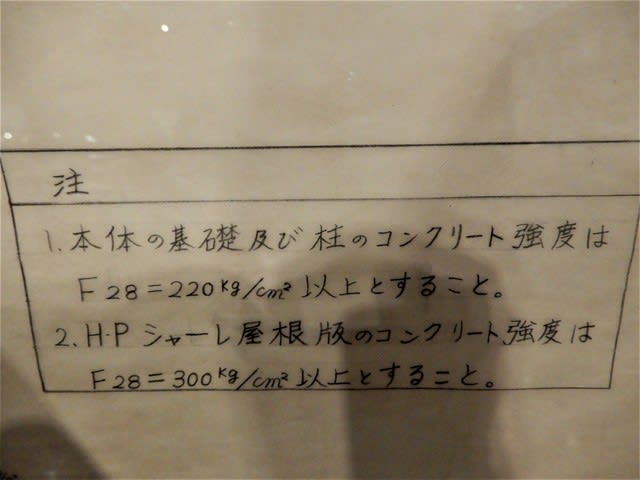 注
1. 本体の基礎及び柱のコンクリート強度は
F28=220kg/cm²以上とすること。
2. H・Pシャーレ屋根版のコンクリート強度は
F28=300kg/cm²以上とすること。